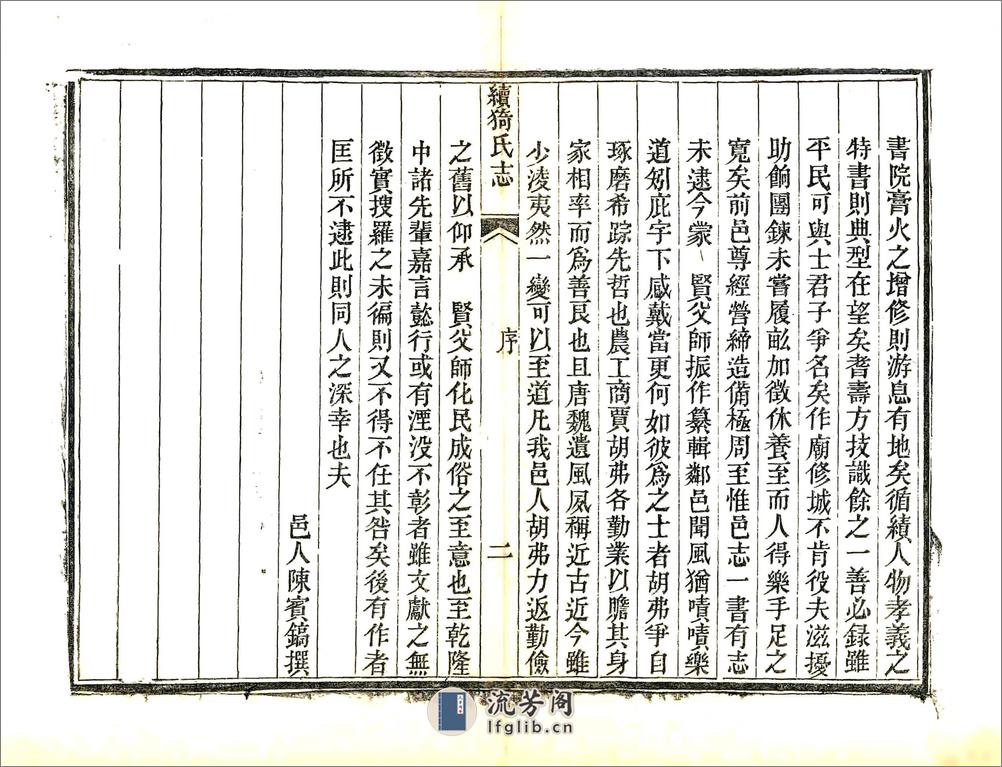 書院膏火之增修則游息有地矣循績人物孝義之
特書則典型在望矣耆壽方技識餘之一善必録雖
平民可與士君子爭名矣作廟修城不肯役夫滋擾
助餉團鍊未嘗履畝加徵休養至而人得樂手足之
寬矣前邑尊經營締造備極周至惟邑志一書有志
未逮今蒙 賢父師振作纂輯鄰邑聞風猶嘖嘖樂
道矧庇宇下感戴當更何如彼爲之士者胡弗爭自
琢磨希踪先哲也農工商賈胡弗各勤業以贍其身
家相率而爲善良也且唐魏遺風夙稱近古近今雖
少淩夷然一變可以至道凡我邑人胡弗力返勤儉
續猗氏志 序 二
之舊以仰承 賢父師化民成俗之至意也至乾隆
中諸先輩嘉言懿行或有湮没不彰者雖文獻之無
徵實搜羅之未徧則又不得不任其咎矣後有作者
匡所不逮此則同人之深幸也夫
邑人陳賓鎬撰
流芳阁
lfglib.cn